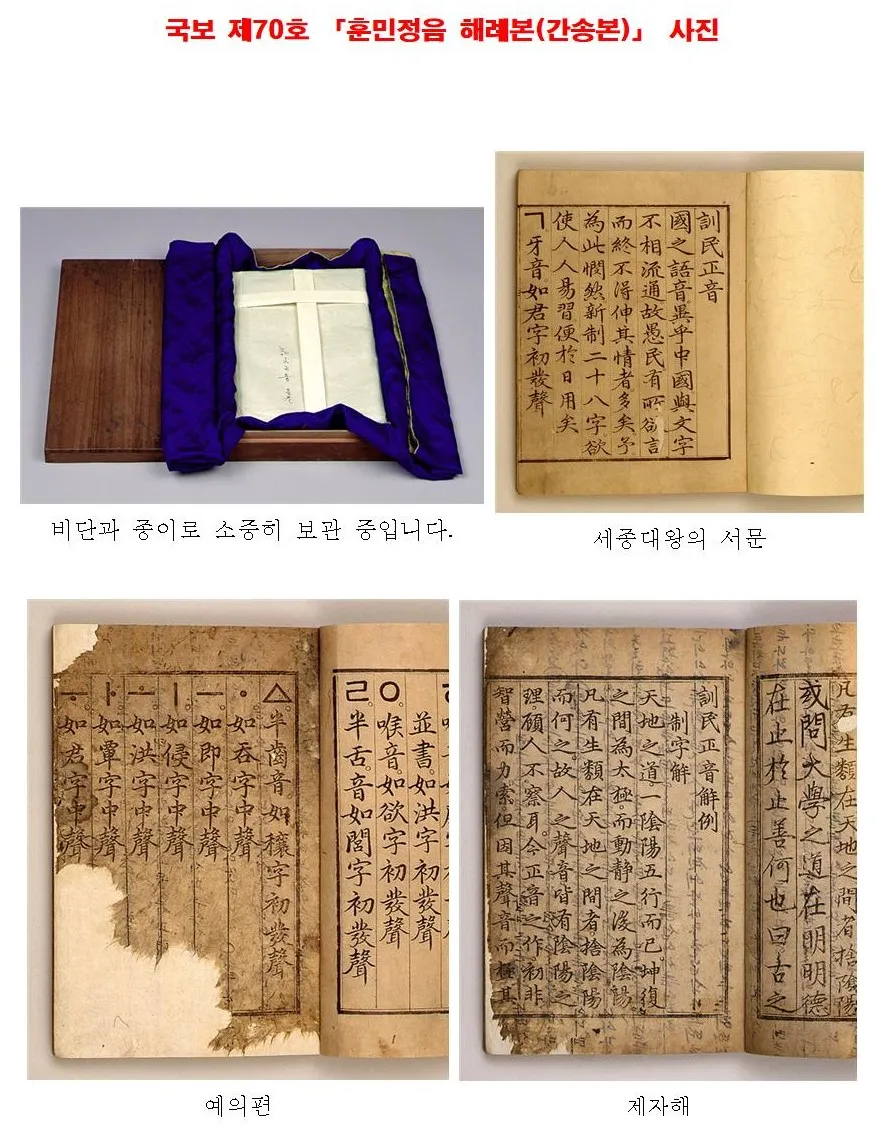 국보 제70호 「훈민정음 해례본(간송본)」 사진
訓民正音
國之語音異乎中國與文字
不相流通故愚民有所欲言
而終不得伸其情者多矣予
為此憫然新制二十八字欲
使人人易習便於日用矣
ㄱ牙音如君字初發聲
비단과 종이로 소중히 보관 중입니다.
세종대왕의 서문
並書。如洪字初發聲
ㅇ。喉音。如欲字初發聲
ㄹ。半舌音。如閭字初發聲
ㅿ。半齒音。如穰字初發聲
ㆍ。如呑字中聲
ㅡ。如即字中聲
ㅣ。如侵字中聲
ㅗ。如洪字中聲
ㅏ。如覃字中聲
ㅜ。如君字中聲
凡有生類在天地之間者捨陰陽
或問大學之道在明明德
在止於止善何也曰古之
訓民正音解例
制字解
天地之道。一陰陽五行而已。坤復
之間為太極。而動静之後為陰陽
凡有生類在天地之間者。捨陰陽
而何之。故人之聲音。皆有陰陽之
理。顧人不察耳。今正音之作。初非
智營而力索。但因其聲音而極其
예의편
제자해